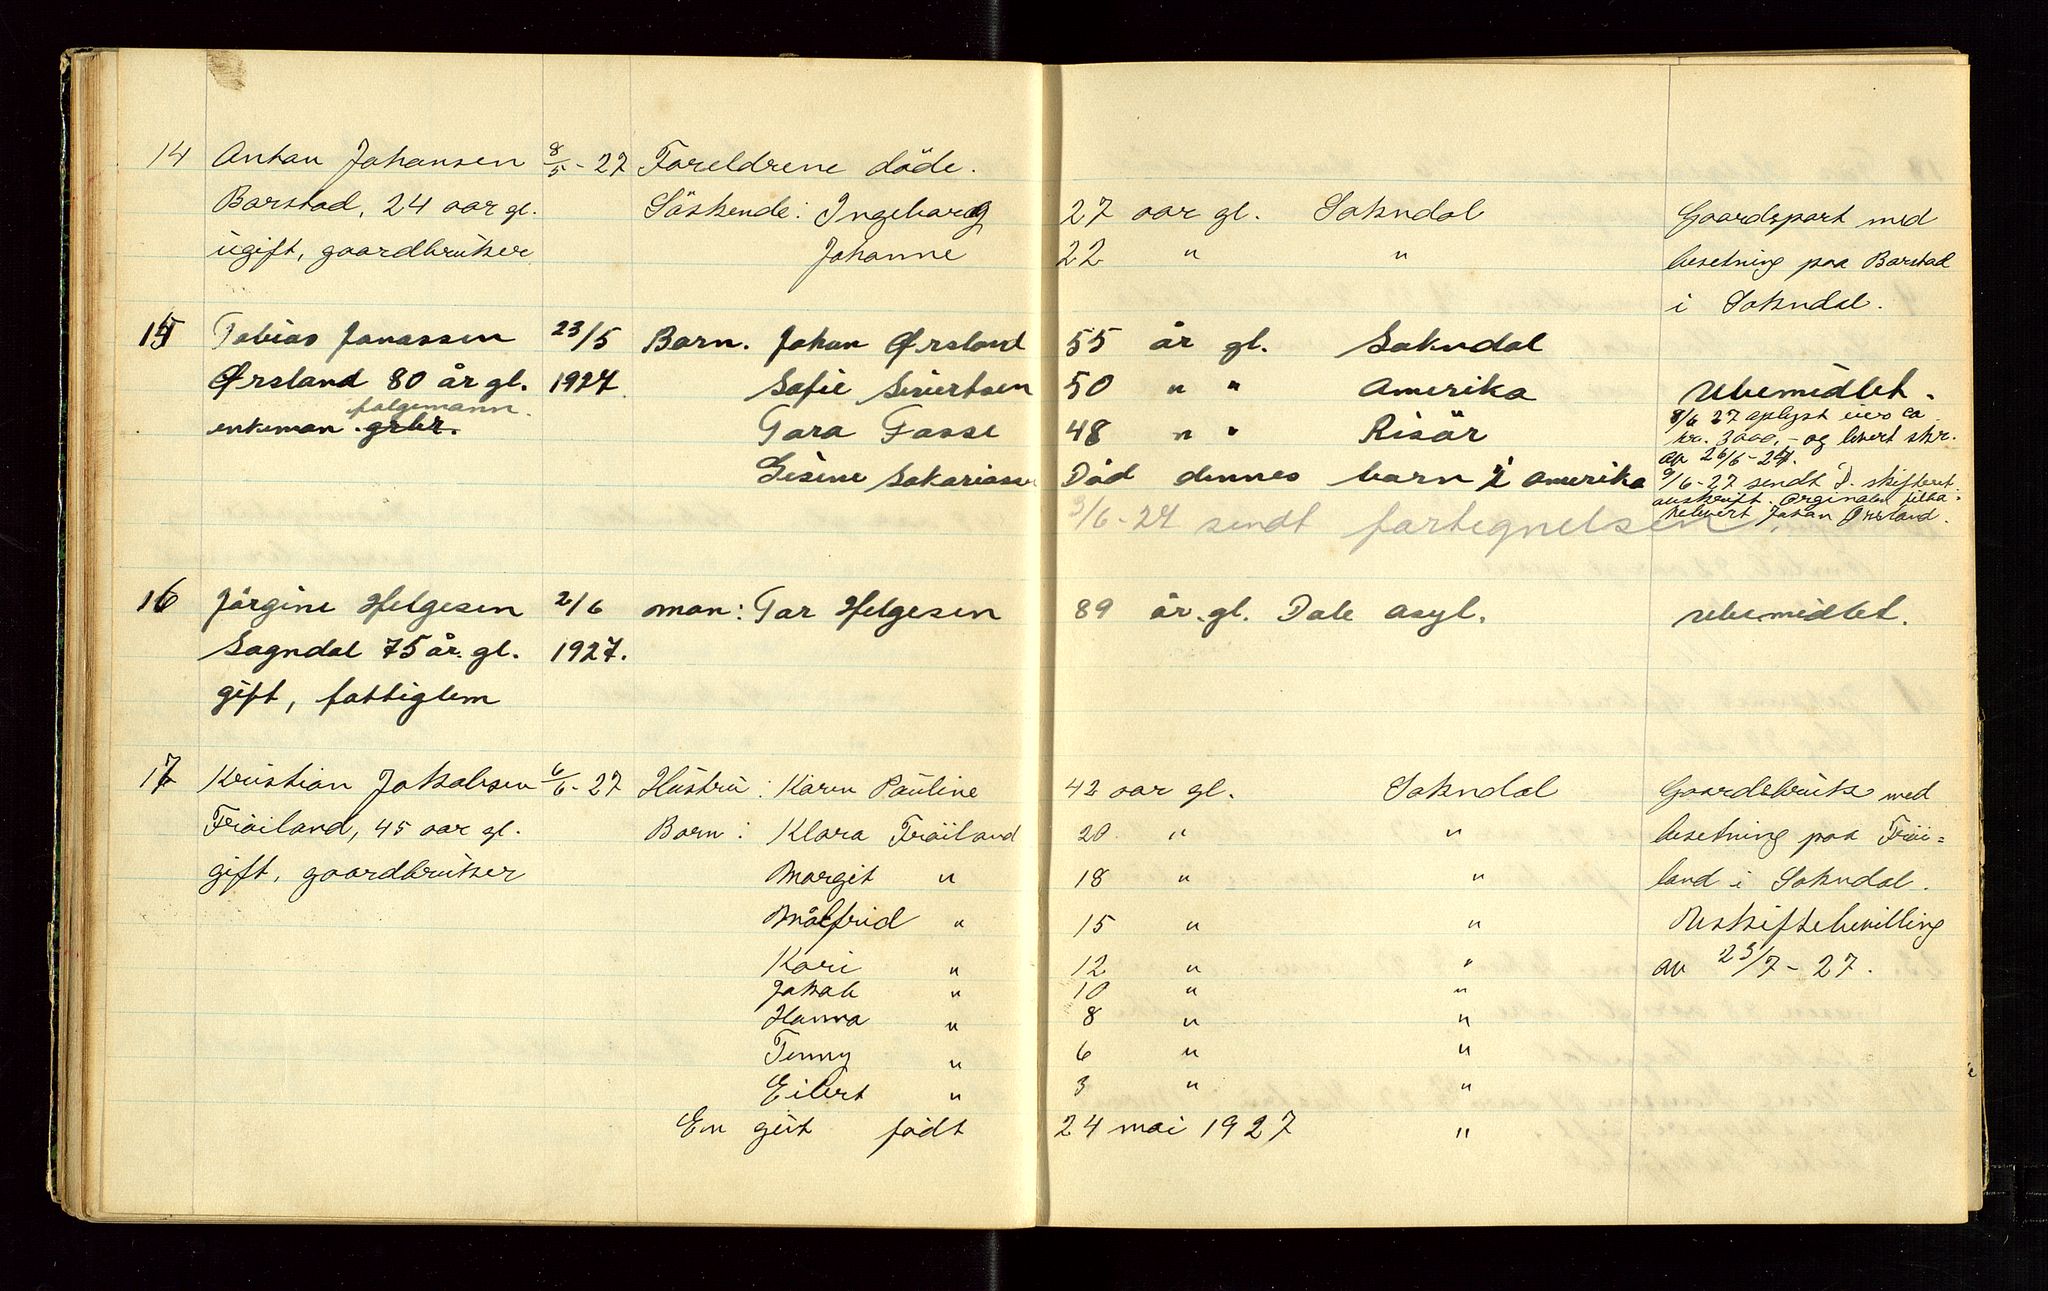 14 Anton Johansen 8/5 - 27 Foreldrene døde.
Barstad, 24 aar gl. Söskende: Ingeborg 27 aar gl. Sokndal Gaardspart med
ugift, gaardbruker Johanne 22 " " besetning paa Barstad
i Sokndal.
15 Tobias Jonassen 23/5 Barn. Johan Ørsland 55 år gl. Sokndal
Ørsland 80 år gl. 1927. Sofie Sivertsen 50 " " Amerika Ubemidlet.
folgemann.
enkeman. grbr. Tora Fosse 48 " " Risör 8/6 27 oplyst eier ca
kr. 3000,- og levert skr.
Gesine Sakariassen Död dennes barn i Amerika av 26/6-24.
9/6-27 sendt D. skifteret
avskrift. Orginalen tilba-
9/6-27 sendt fortegnelsen. kelevert Johan Ørsland.
16 Jörgine Helgesen 2/6 man: Tor Helgesen 89 år gl. Dale asyl. ubemidlet.
Sogndal 75 år gl. 1927.
gift, fattiglem
17 Kristian Jakobsen 6/6 - 27 Hustru: Karen Pauline 42 aar gl. Sokndal Gaardsbruk med
Fröiland, 45 aar gl. Barn: Klara Fröiland 20 " " besetning paa Fröi-
gift, gaardbruker Margit " 18 " " land i Sokndal.
Målfrid " 15 " " Uskiftebevilling
Kari " 12 " " av 23/7 - 27.
Jakob " 10 " "
Hanna " 8 " "
Tenny " 6 " "
Eilert " 3 " "
En gut födt 24 mai 1927 "